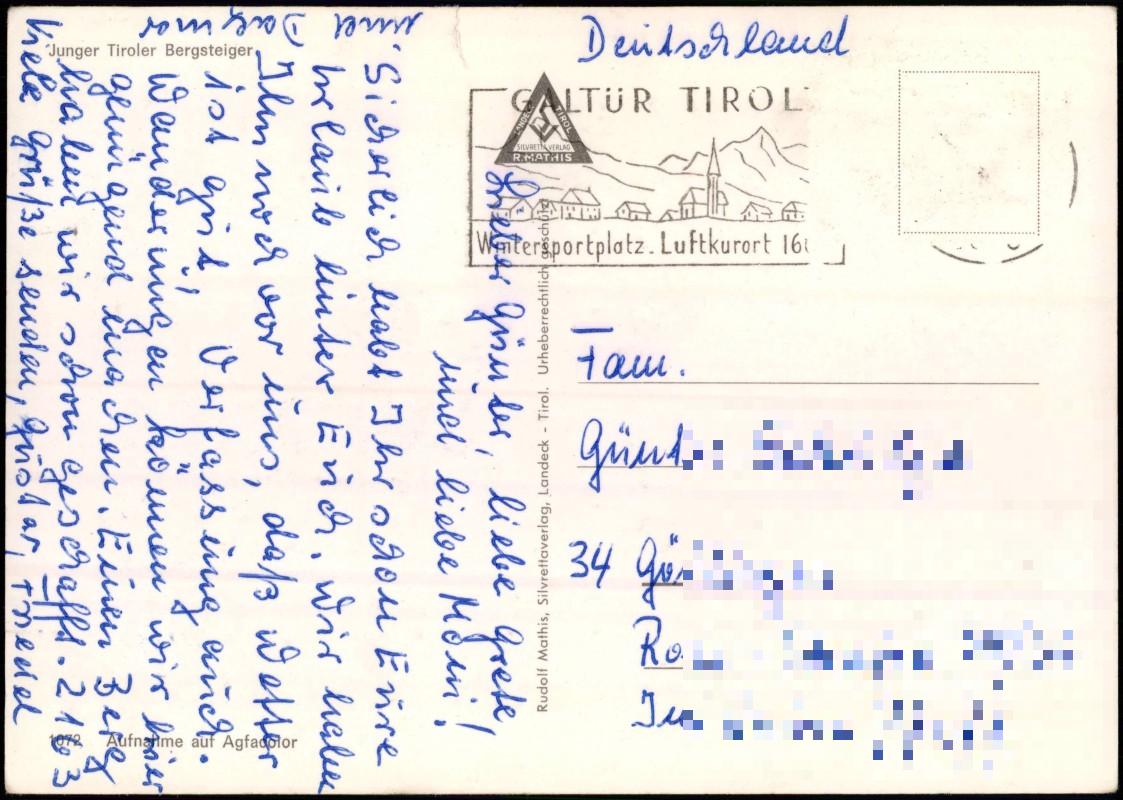 Junger Tiroler Bergsteiger
Lieber Günter, liebe Grete,
und liebe Moni!
Sicherlich habt Ihr schon Eure
Urlaub hinter Euch. Wir haben
Ihn noch vor uns, daß Wetter
ist gut, Verfassung auch.
Wanderungen können wir hier
genügend machen. Einen Berg
haben wir schon geschafft. 2163
Viele Grüße senden, Gustav, Friedel
und
Dagmar
1072 Aufnahme auf Agfacolor
Rudolf Mathis, Silvrettaverlag, Landeck - Tirol. Urheberrechtlich geschützt
Deutschland
GALTÜR TIROL
LANDECK TIROL
SILVRETTAVERLAG
R. MATHIS
Wintersportplatz. Luftkurort 16
Fam.
Günt
34 Gö
Ro